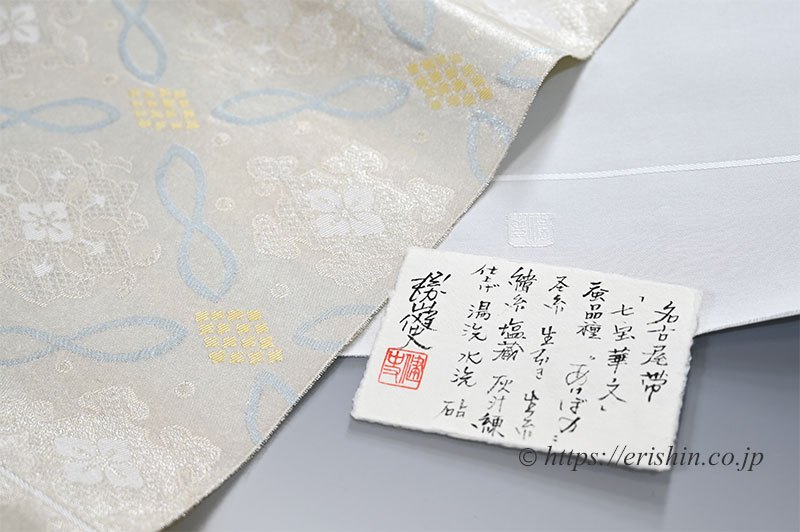 名古屋帯
「七宝華文」
蚕品種 "あけぼの"
経糸 生引き 生糸
緯糸 塩蔵 灰汁練
仕上げ 湯洗 水洗 砧
勝山健史
健史
© https://erishin.co.jp